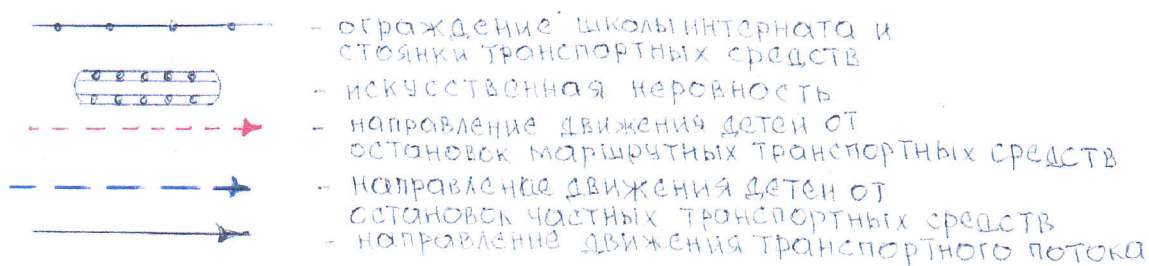 - ограждение школы интерната и
стоянки транспортных средств
- искусственная неровность
- направление движения детей от
остановок маршрутных транспортных средств
- направление движения детей от
остановок частных транспортных средств
- направление движения транспортного потока